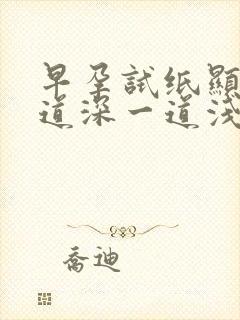 早孕試纸顯
道深一道淺
喬迪